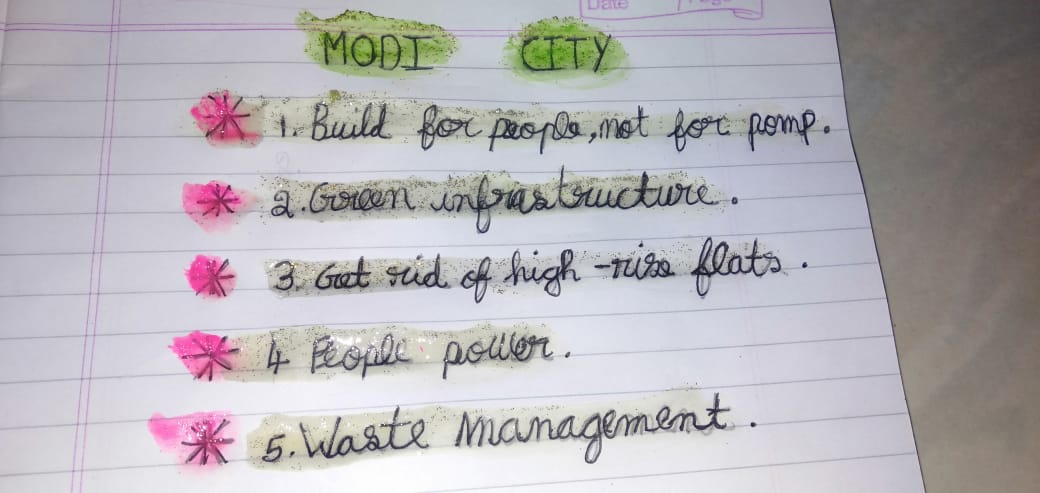 Date
MODI CITY
1. Build for people, not for pomp.
2. Green infrastructure.
3. Get rid of high-rise flats.
4 People power.
5. Waste Management.